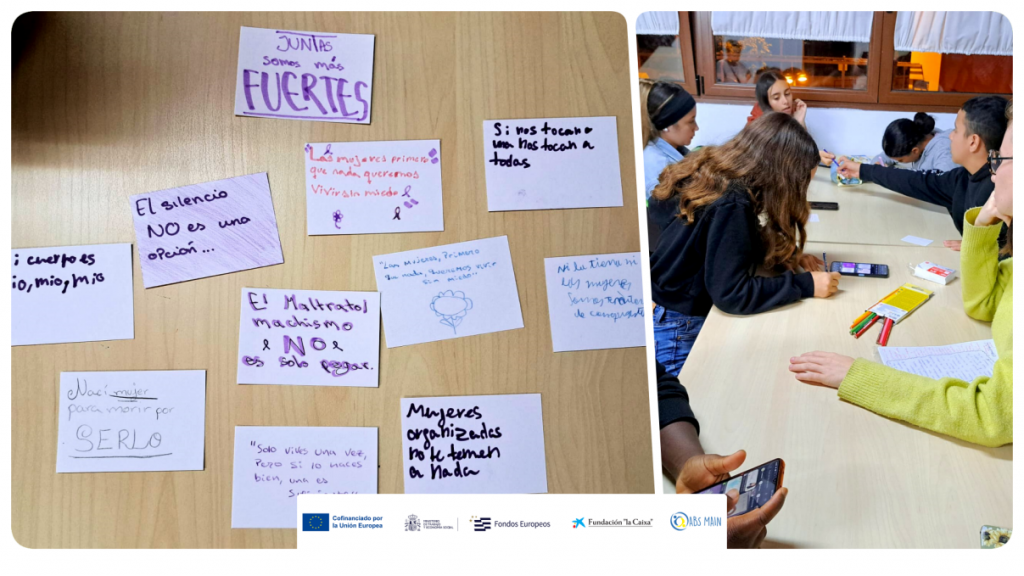 JUNTAS
somos más
FUERTES
Las mujeres primero
que nada queremos
Vivir sin miedo
Si nos tocan a
una nos tocan a
todas
El silencio
NO es una
opción...
i cuerpo es
io, mio, mio
"Las mujeres, Primero
que nada, queremos vivir
sin miedo"
Ni la tierra ni
las mujeres,
Somos territorio
de conquista
El Maltrato/
machismo
NO
es solo pegar.
Nací mujer
para morir por
SERLO
"Solo vives una vez,
Pero si lo haces
bien, una es
Mujeres
organizadas
no le temen
a nada
Cofinanciado por
la Unión Europea
Fondos Europeos
Fundación "la Caixa"
ABS MAIN